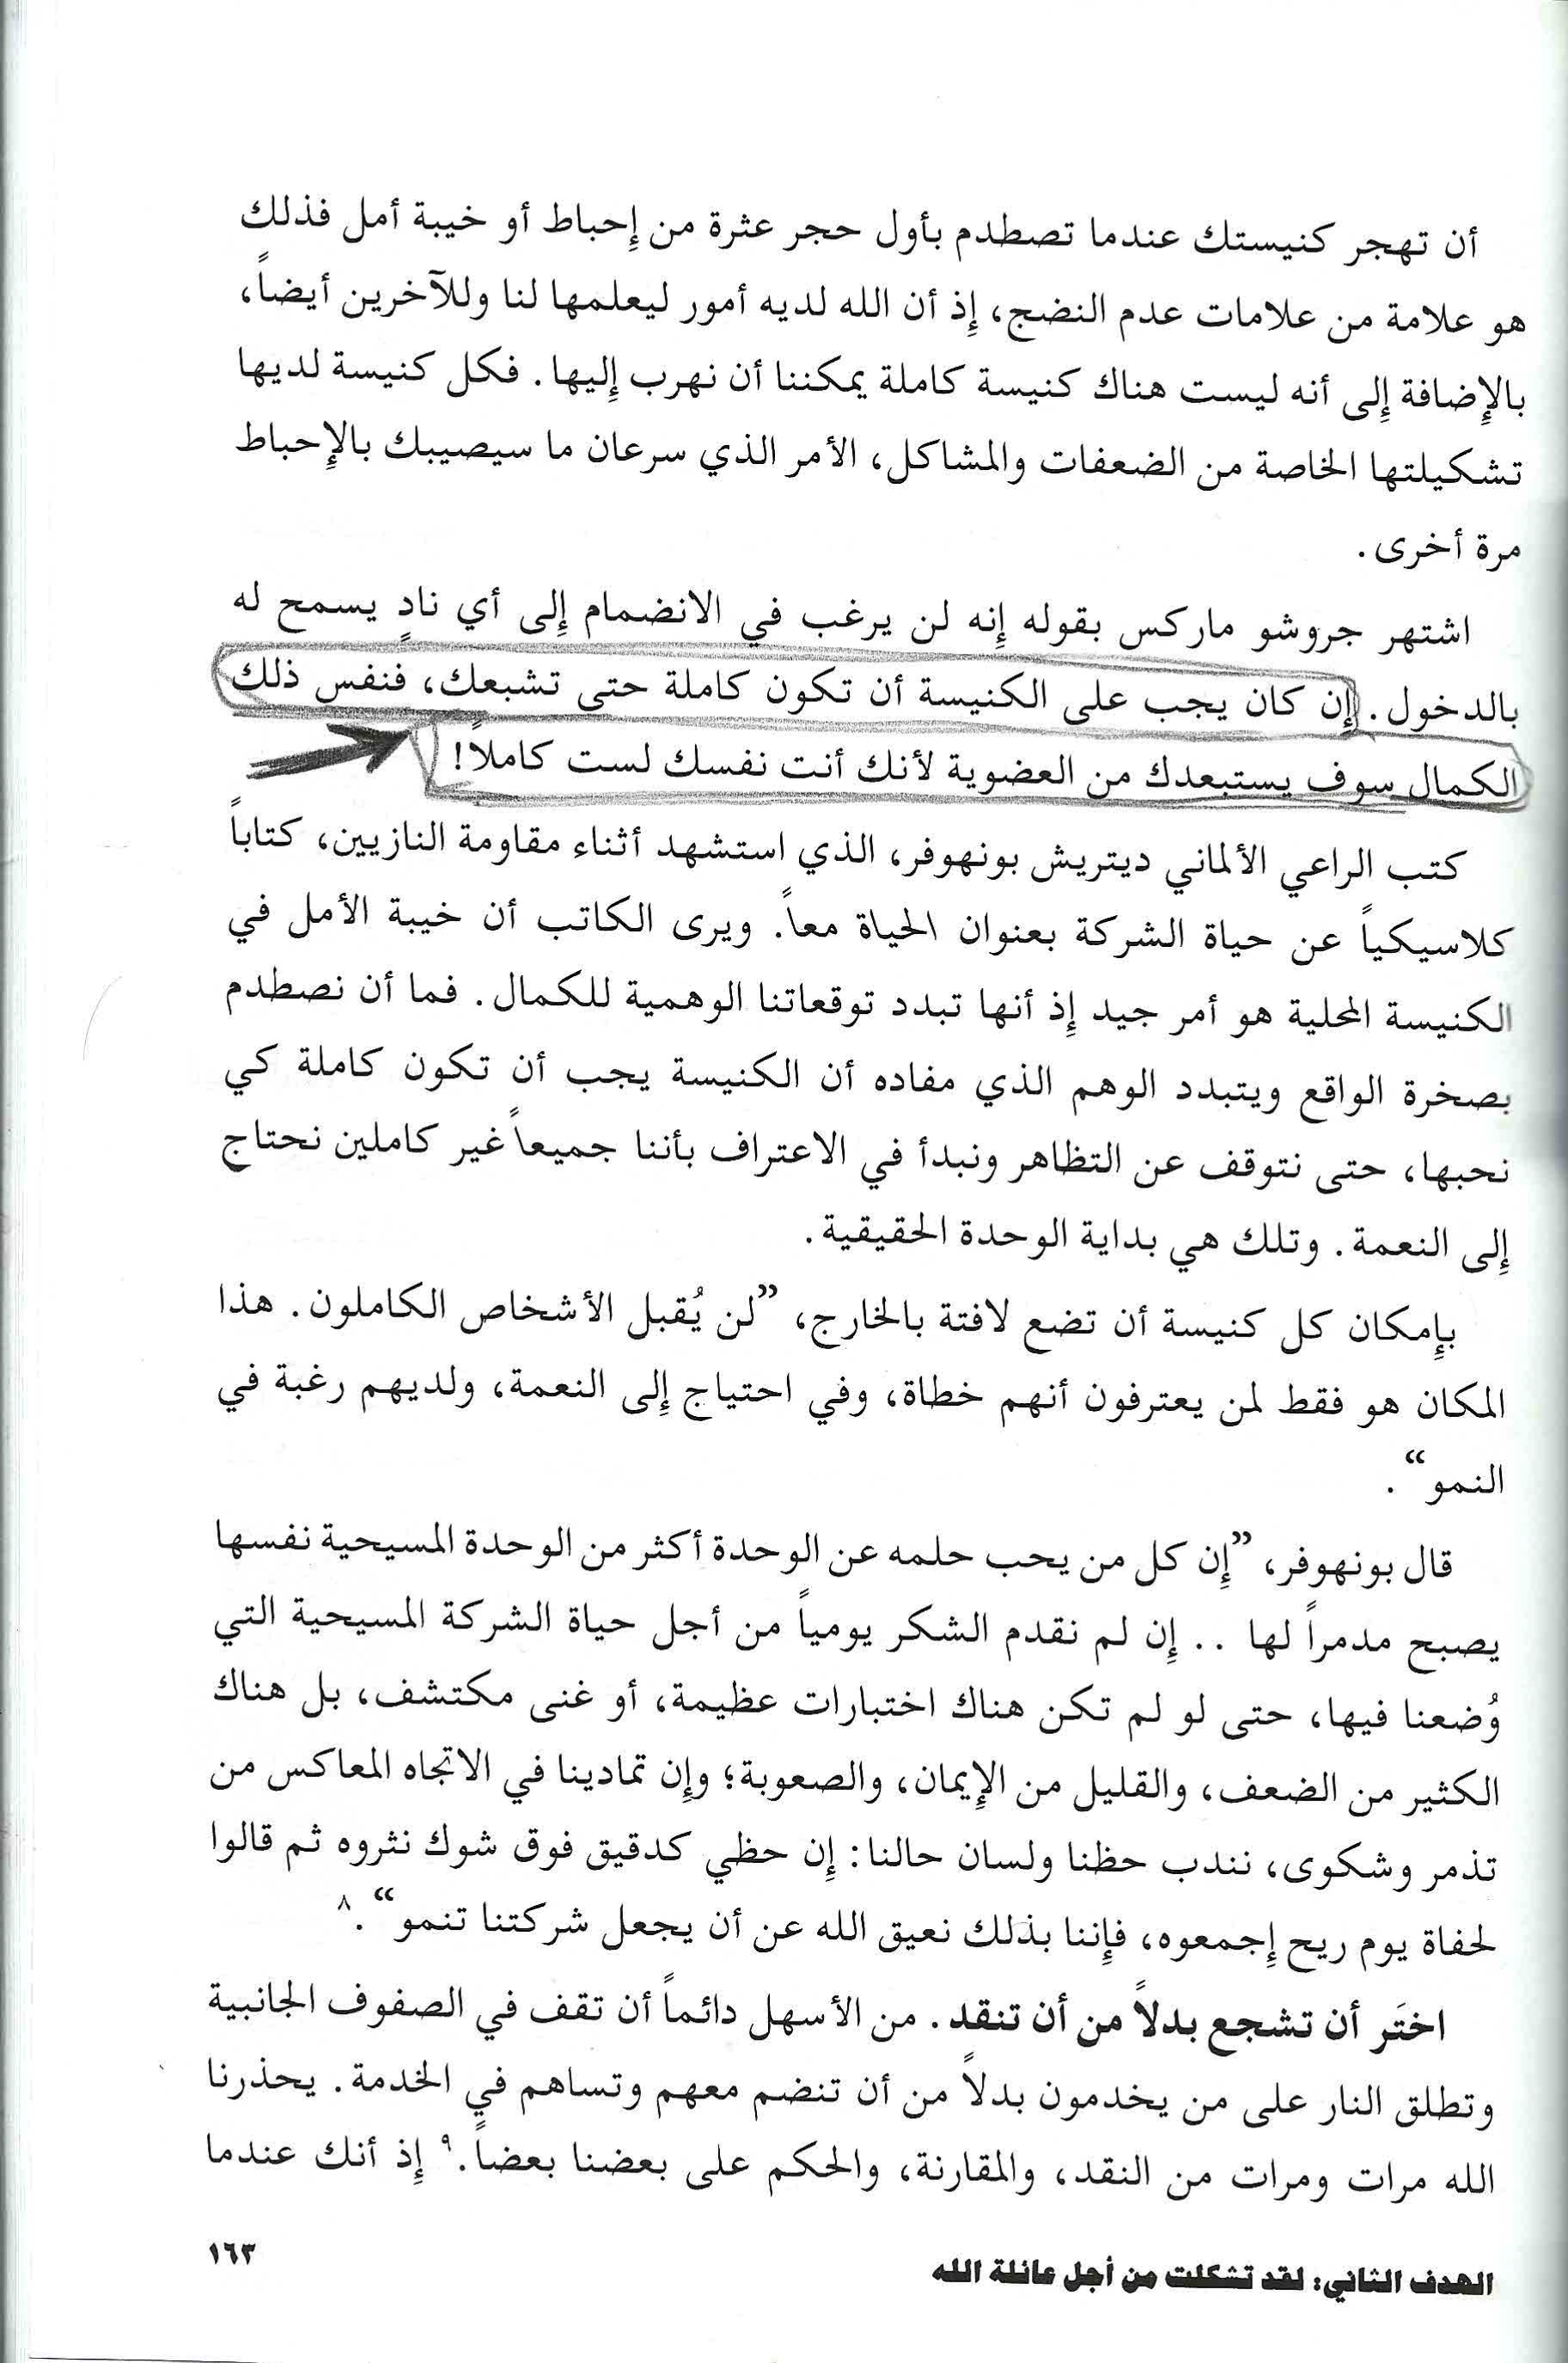 أن تهجر كنيستك عندما تصطدم بأول حجر عثرة من إحباط أو خيبة أمل فذلك
هو علامة من علامات عدم النضج، إذ أن الله لديه أمور ليعلمها لنا وللآخرين أيضاً،
بالإضافة إلى أنه ليست هناك كنيسة كاملة يمكننا أن نهرب إليها. فكل كنيسة لديها
تشكيلتها الخاصة من الضعفات والمشاكل، الأمر الذي سرعان ما سيصيبك بالإحباط
مرة أخرى.
اشتهر جروشو ماركس بقوله إنه لن يرغب في الانضمام إلى أي نادٍ يسمح له
بالدخول. إن كان يجب على الكنيسة أن تكون كاملة حتى تشبعك، فنفس ذلك
الكمال سوف يستبعدك من العضوية لأنك أنت نفسك لست كاملاً!
كتب الراعي الألماني ديتريش بونهوفر، الذي استشهد أثناء مقاومة النازيين، كتاباً
كلاسيكياً عن حياة الشركة بعنوان الحياة معاً. ويرى الكاتب أن خيبة الأمل في
الكنيسة المحلية هو أمر جيد إذ أنها تبدد توقعاتنا الوهمية للكمال. فما أن نصطدم
بصخرة الواقع ويتبدد الوهم الذي مفاده أن الكنيسة يجب أن تكون كاملة كي
نحبها، حتى نتوقف عن التظاهر ونبدأ في الاعتراف بأننا جميعاً غير كاملين نحتاج
إلى النعمة. وتلك هي بداية الوحدة الحقيقية.
بإمكان كل كنيسة أن تضع لافتة بالخارج، ”لن يُقبل الأشخاص الكاملون. هذا
المكان هو فقط لمن يعترفون أنهم خطاة، وفي احتياج إلى النعمة، ولديهم رغبة في
النمو“.
قال بونهوفر، ”إن كل من يحب حلمه عن الوحدة أكثر من الوحدة المسيحية نفسها
يصبح مدمراً لها .. إن لم نقدم الشكر يومياً من أجل حياة الشركة المسيحية التي
وُضعنا فيها، حتى لو لم تكن هناك اختبارات عظيمة، أو غنى مكتشف، بل هناك
الكثير من الضعف، والقليل من الإيمان، والصعوبة؛ وإن تمادينا في الاتجاه المعاكس من
تذمر وشكوى، نندب حظنا ولسان حالنا: إن حظي كدقيق فوق شوك نثروه ثم قالوا
لحفاة يوم ريح إجمعوه، فإننا بذلك نعيق الله عن أن يجعل شركتنا تنمو“.٨
اختَر أن تشجع بدلاً من أن تنقد. من الأسهل دائماً أن تقف في الصفوف الجانبية
وتطلق النار على من يخدمون بدلاً من أن تنضم معهم وتساهم في الخدمة. يحذرنا
الله مرات ومرات من النقد، والمقارنة، والحكم على بعضنا بعضاً.٩ إذ أنك عندما
الهدف الثاني: لقد تشكلت من أجل عائلة الله ١٦٣